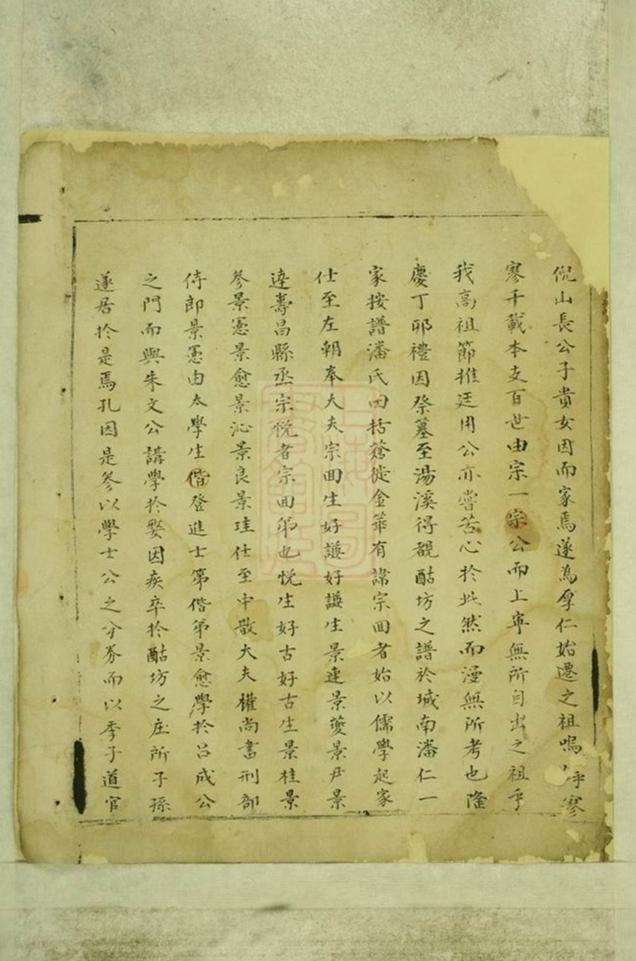 倪山長公子貴女因而家焉遂為厚仁始遷之祖嗚呼寥
寥千載本支百世由宗一宗公而上寧無所自出之祖乎
我高祖節推廷用公亦嘗苦心於此然而漫無所考也隆
慶丁卯禮因祭墓至湯溪得覩酤坊之譜於城南潘仁一
家按譜潘氏由括蒼徙金華有諱宗回者始以儒學起家
仕至左朝奉大夫宗回生好謙好謙生景連景夔景尹景
達壽昌縣丞宗悅者宗回弟也悅生好古好古生景桂景
參景憲景愈景沁景良景珪仕至中散大夫權尚書刑部
侍郎景憲由太學生偕登進士第偕弟景愈學於呂成公
之門而與朱文公講學於婺因疾卒於酤坊之庄所子孫
遂居於是焉孔因是參以學士公之分券而以季子道官